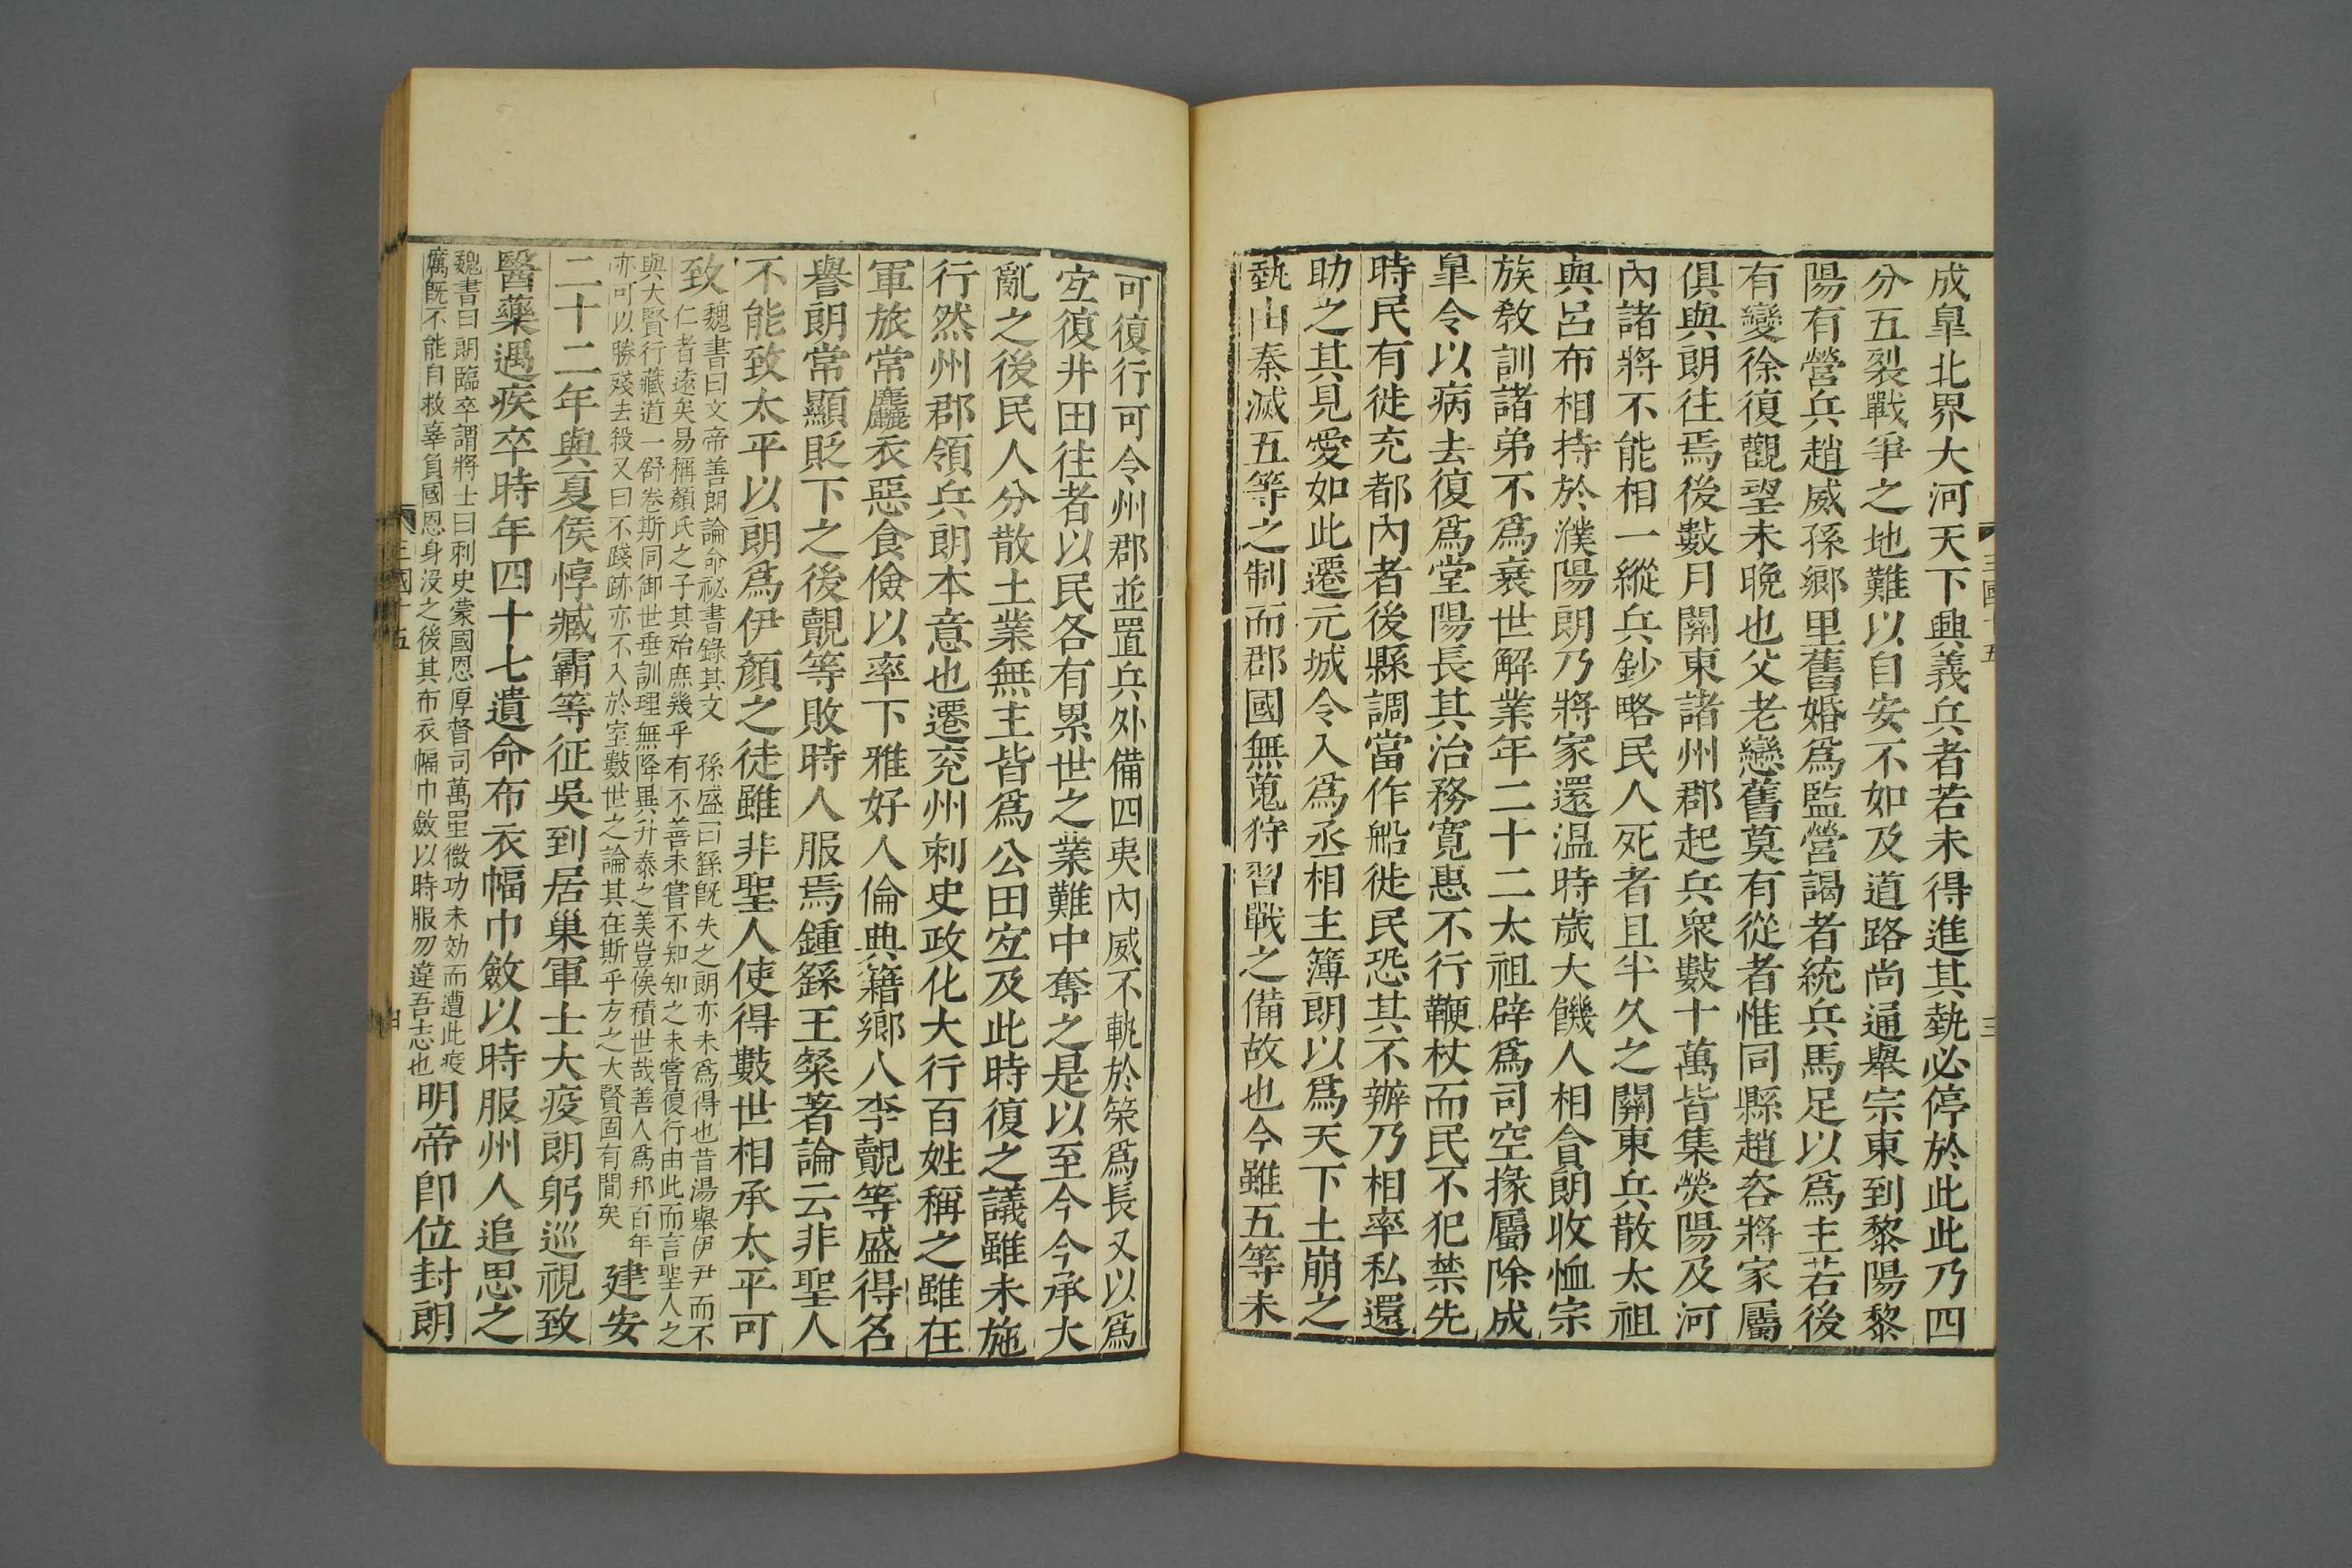 成皐北界大河天下興義兵者若未得進其埶必停於此此乃四
分五裂戰爭之地難以自安不如及道路尚通舉宗東到黎陽黎
陽有營兵趙威孫鄉里舊婚爲監營謁者統兵馬足以爲主若後
有變徐復觀望未晚也父老戀舊莫有從者惟同縣趙咨將家屬
俱與朗往焉後數月關東諸州郡起兵衆數十萬皆集熒陽及河
內諸將不能相一縱兵鈔略民人死者且半久之關東兵散太祖
與呂布相持於濮陽朗乃將家還温時歲大饑人相食朗收恤宗
族敎訓諸弟不爲衰世解業年二十二太祖辟爲司空掾屬除成
皐令以病去復爲堂陽長其治務寬惠不行鞭杖而民不犯禁先
時民有徙充都內者後縣調當作船徙民恐其不辦乃相率私還
助之其見愛如此遷元城令入爲丞相主簿朗以爲天下土崩之
埶由秦滅五等之制而郡國無蒐狩習戰之備故也今雖五等未
三國十五 三
可復行可令州郡並置兵外備四夷內威不軌於策爲長又以爲
宜復井田往者以民各有累世之業難中奪之是以至今今承大
亂之後民人分散土業無主皆爲公田宜及此時復之議雖未施
行然州郡領兵朗本意也遷兖州刺史政化大行百姓稱之雖在
軍旅常麤衣惡食儉以率下雅好人倫典籍鄉人李覿等盛得名
譽朗常顯貶下之後覿等敗時人服焉鍾繇王粲著論云非聖人
不能致太平以朗爲伊顏之徒雖非聖人使得數世相承太平可
致
魏書曰文帝善朗論命祕書錄其文 孫盛曰繇旣失之朗亦未爲得也昔湯舉伊尹而不
仁者遠矣易稱顏氏之子其殆庶幾乎有不善未嘗不知知之未嘗復行由此而言聖人之
與大賢行藏道一舒卷斯同御世垂訓理無降異升泰之美豈俟積世哉善人爲邦百年
亦可以勝殘去殺又曰不踐跡亦不入於室數世之論其在斯乎方之大賢固有間矣
建安
二十二年與夏侯惇臧霸等征吳到居巢軍士大疫朗躬巡視致
醫藥遇疾卒時年四十七遺命布衣幅巾斂以時服州人追思之
魏書曰朗臨卒謂將士曰刺史蒙國恩厚督司萬里微功未効而遭此疫
癘旣不能自救辜負國恩身沒之後其布衣幅巾斂以時服勿違吾志也
明帝卽位封朗
三國十五